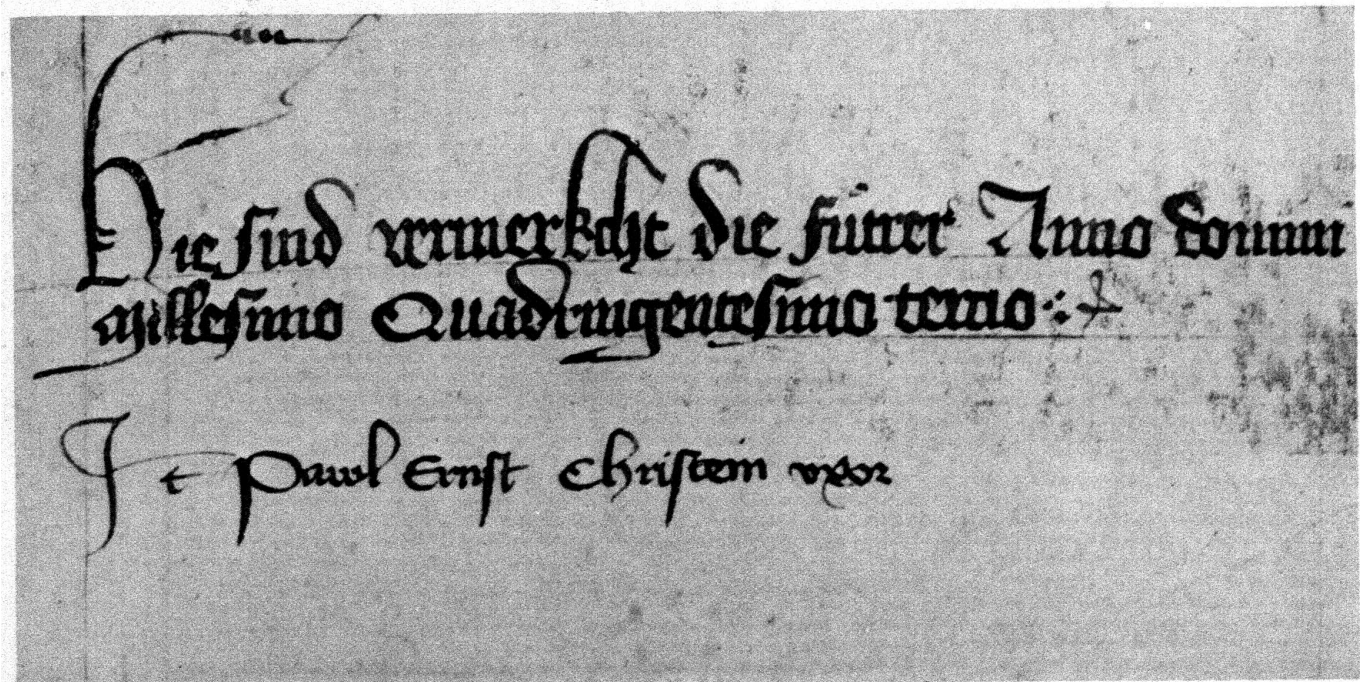 Hie sind vermerkcht die fuᷓtrer Anno domini
Millesimo Quadringentesimo tercio
It Pawl Ernst Christein vxor